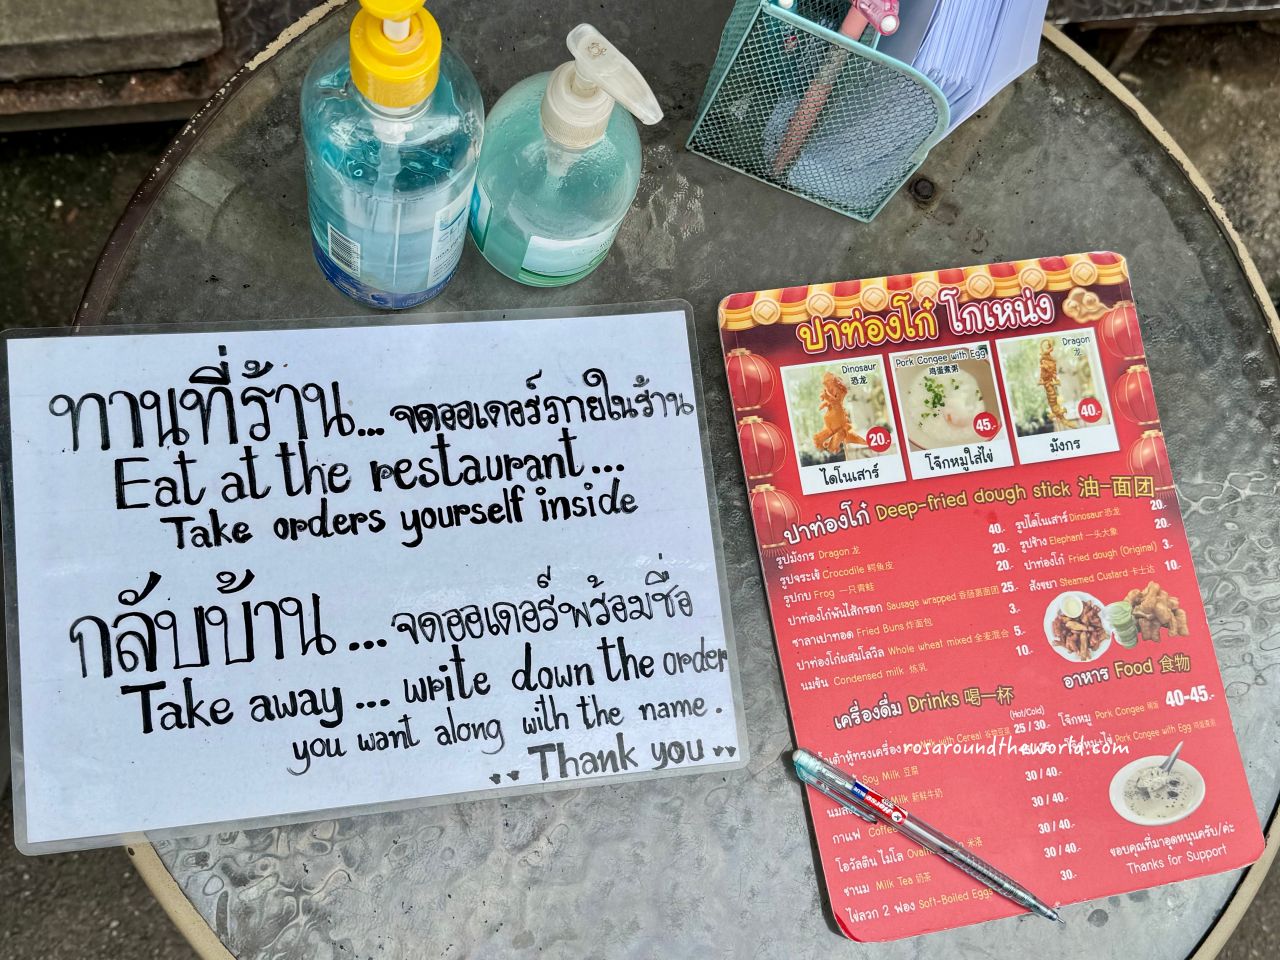 ทานที่ร้าน... จดออเดอร์ภายในร้าน
Eat at the restaurant...
Take orders yourself inside
กลับบ้าน... จดออเดอร์พร้อมชื่อ
Take away... write down the order
you want along with the name.
Thank you
ปาท่องโก๋ โกเหน่ง
Dinosaur
恐龙
20.-
ไดโนเสาร์
Pork Congee with Egg
鸡蛋煮粥
45.-
โจ๊กหมูใส่ไข่
Dragon
龙
40.-
มังกร
ปาท่องโก๋ Deep-fried dough stick 油一面团
รูปมังกร Dragon 龙 40.-
รูปจระเข้ Crocodile 鳄鱼皮 20.-
รูปกบ Frog 一只青蛙 20.-
ปาท่องโก๋พันไส้กรอก Sausage wrapped 香肠裹面团 25.-
ซาลาเปาทอด Fried Buns 炸面包 3.-
ปาท่องโก๋ผสมโฮวีล Whole wheat mixed 全麦混合 5.-
นมข้น Condensed milk 炼乳 10.-
รูปไดโนเสาร์ Dinosaur 恐龙 20.-
รูปช้าง Elephant 一头大象 20.-
ปาท่องโก๋ Fried dough (Original) 3.-
สังขยา Steamed Custard 卡士达 10.-
เครื่องดื่ม Drinks 喝一杯
(Hot/Cold)
น้ำเต้าหู้ทรงเครื่อง Milk with Cereal 谷物豆浆 25 / 30.-
Soy Milk 豆腐
Milk 新鲜牛奶 30 / 40.-
กาแฟ Coffee 30 / 40.-
โอวัลติน ไมโล 米洛 30 / 40.-
ชานม Milk Tea 奶茶 30 / 40.-
ไข่ลวก 2 ฟอง Soft-Boiled Eggs 30.-
อาหาร Food 食物
โจ๊กหมู Pork Congee 稀饭 40-45.-
Pork Congee with Egg 鸡蛋煮粥
rosaroundtheworld.com
ขอบคุณที่มาอุดหนุนครับ/ค่ะ
Thanks for Support